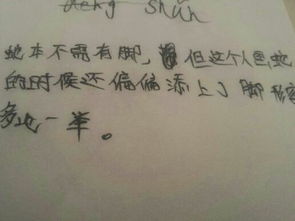 deng shǔn
蛇本不需有脚，但这个人画蛇
的时候还偏偏添上了脚形容
多此一举。